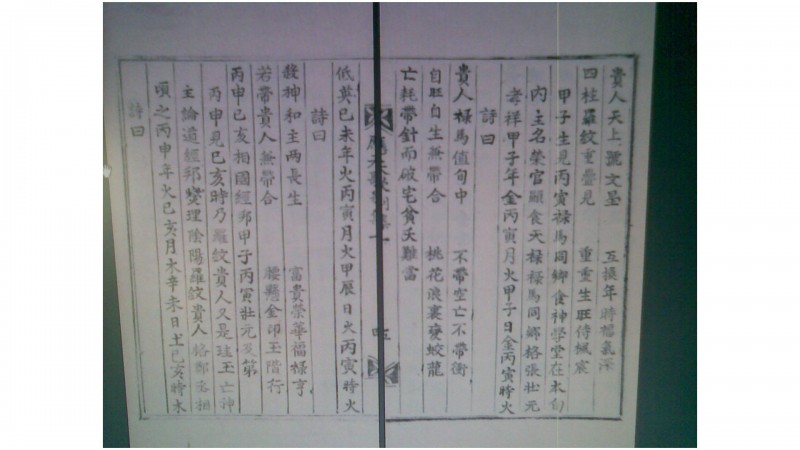 貴人天上號文星　互換年時福氣深
四柱羅紋重疊見　重重生旺侍楓宸
甲子生見丙寅祿馬同鄉食神學堂在本旬
內主名榮官顯食天祿祿馬同鄉格張壯元
孝祥甲子年金丙寅月火甲子日金丙寅時火
詩曰
貴人祿馬値旬中　不帶空亡不帶衝
自旺自生兼帶合　桃花浪裏變蛟龍
亡耗帶針而破宅貧夭難當
低英巳未年火丙寅月火甲辰日火丙寅時火
詩曰
殺神和主兩長生　富貴榮華福祿亨
若帶貴人兼帶合　腰懸金印玉階行
丙申巳亥相國經邦甲子丙寅壯元及第
丙申見巳亥時乃羅紋貴人又是珪玉亡神
主論道經邦燮理陰陽羅紋貴人格鄭丞相
頃之丙申年火巳亥月木辛未日土巳亥時木
詩曰